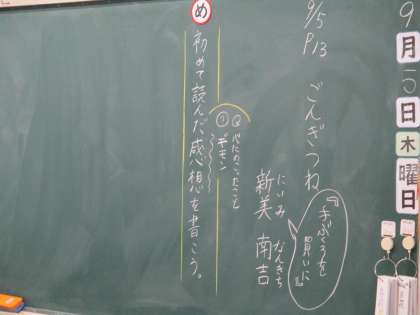 9月5日木曜日
9/5
P13
ごんぎつね
にいみ なんきち
新美 南吉
『手ぶくろを
買いに』
め
初めて読んだ感想を書こう。
心にのこったこと
？ギモン